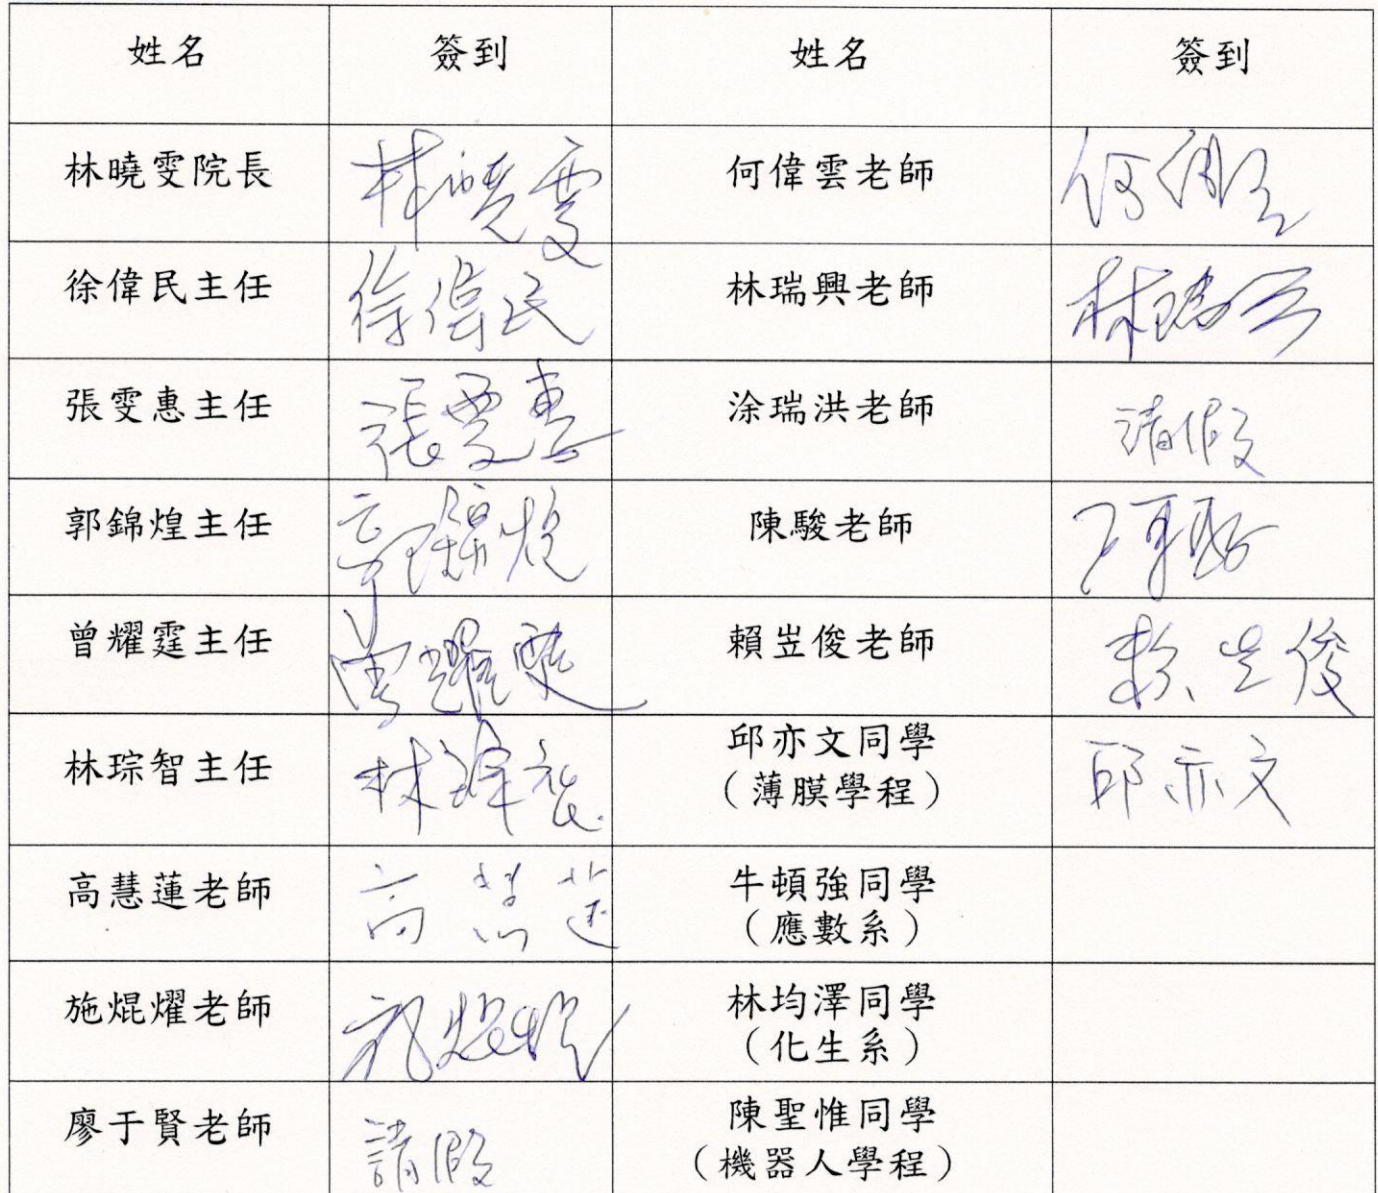 姓名 簽到 姓名 簽到
林曉雯院長 林曉雯 何偉雲老師 何偉雲
徐偉民主任 徐偉民 林瑞興老師 林瑞興
張雯惠主任 張雯惠 涂瑞洪老師 請假
郭錦煌主任 郭錦煌 陳駿老師 陳駿
曾耀霆主任 曾耀霆 賴岦俊老師 賴岦俊
林琮智主任 林琮智 邱亦文同學 邱亦文
（薄膜學程）
高慧蓮老師 高慧蓮 牛頓強同學
（應數系）
施焜燿老師 施焜燿 林均澤同學
（化生系）
廖于賢老師 請假 陳聖惟同學
（機器人學程）